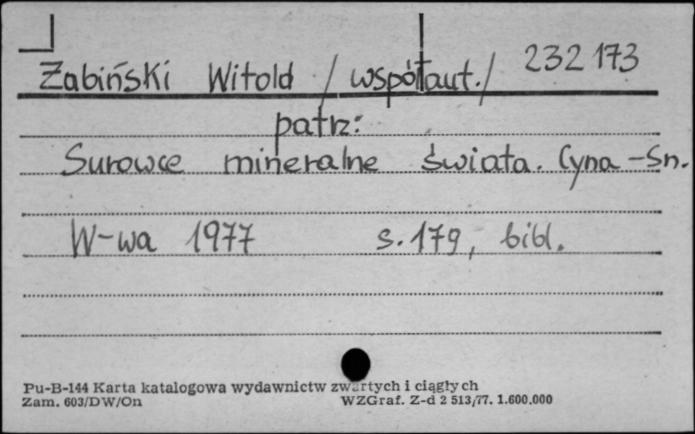 Żabiński Witold /współaut./ 232 173
patrz:
Surowce mineralne świata. Cyna -Sn.
W-wa 1977 s. 179, bibl.
Pu-B-144 Karta katalogowa wydawnictw zwartych i ciągłych
Zam. 603/DW/On WZGraf. Z-d 2 513/77. 1.600.000